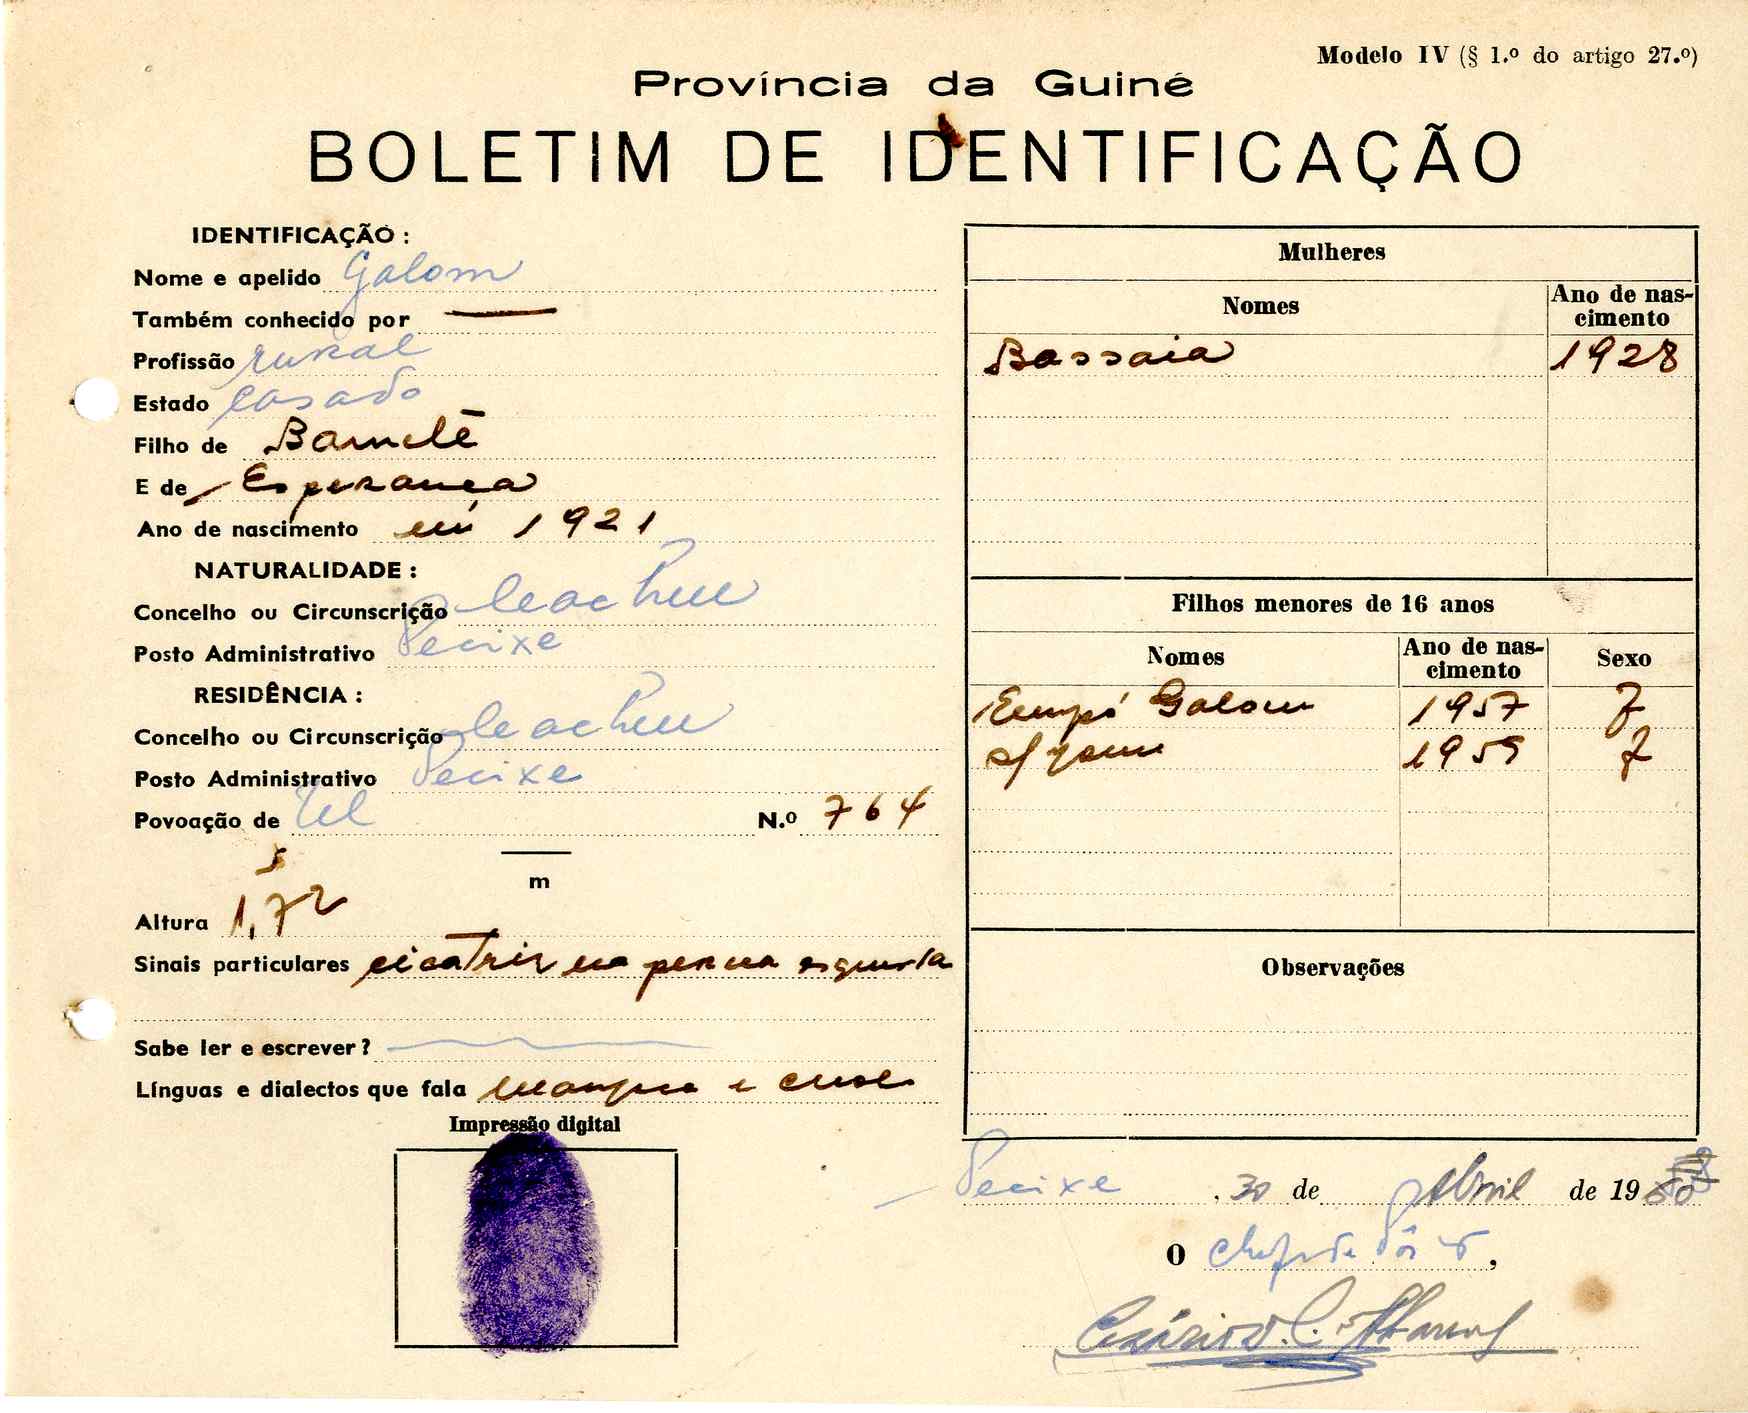 Modelo IV (§ 1.º do artigo 27.º)
Província da Guiné
BOLETIM DE IDENTIFICAÇÃO
IDENTIFICAÇÃO :
Nome e apelido Galom
Também conhecido por —
Profissão rural
Estado casado
Filho de
E de Esperança
Ano de nascimento em 1921
NATURALIDADE :
Concelho ou Circunscrição Cacheu
Posto Administrativo Pecixe
RESIDÊNCIA :
Concelho ou Circunscrição Cacheu
Posto Administrativo Pecixe
Povoação de N.º 764
m
Altura 1,72
Sinais particulares cicatriz na perna esquerda
Sabe ler e escrever ?
Línguas e dialectos que fala e
Impressão digital
Mulheres
Nomes Ano de nas-
cimento
Bassaia 1928
Filhos menores de 16 anos
Nomes Ano de nas-
cimento Sexo
Galom 1957 f
1959 f
Observações
Pecixe, 30 de Abril de 19
O chefe de Pôsto,